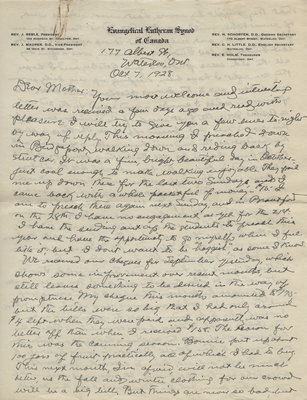 Evangelical Lutheran Synod
of Canada
REV. J. REBLE, PRESIDENT
REV. J. MAURER, D.D., VICE-PRESIDENT
REV. H. SCHORTEN, D.D., GERMAN SECRETARY
REV. C. H. LITTLE, D.D., ENGLISH SECRETARY
WATERLOO, ONT.
TREASURER
177 Albert St,
Waterloo, Ont
Oct 7, 1928.
Dear Mother,
Your most welcome and interesting
letter was received a few days ago and read with
pleasure. I will try to give you a few lines to-night
by way of reply. This morning I preached down
in Bridgeport, walking down and riding back by
street car. It was a fine, bright beautiful day in October,
just cool enough to make walking enjoyable. They paid
me up down there for the last two Sundays and I
came back with a whole pocketful of money $15. I
am to preach there again next Sunday and in Brantford
on the 28th. I have no engagement as yet for the 21st.
I have the sending out of the students to preach this
year and have the opportunity to go myself when I feel
like it but I don't want to be "hoggish" as some I know.
We received our cheques for September yesterday, which
shows some improvement over recent months, but
still leaves something to be desired in the way of
promptness. My cheque this month amounted to $175.
but the bills were so big that I had only
$4 left, after they were paid and apparently was no
better off than when I received $150. The reason for
this was the canning season. Bonnie put up about
100 jars of fruit practically all of which I had to buy.
This next month, I'm afraid will not be much
better as the fall and winter clothing for our crowd
will be a big bill, But things are now so bad but